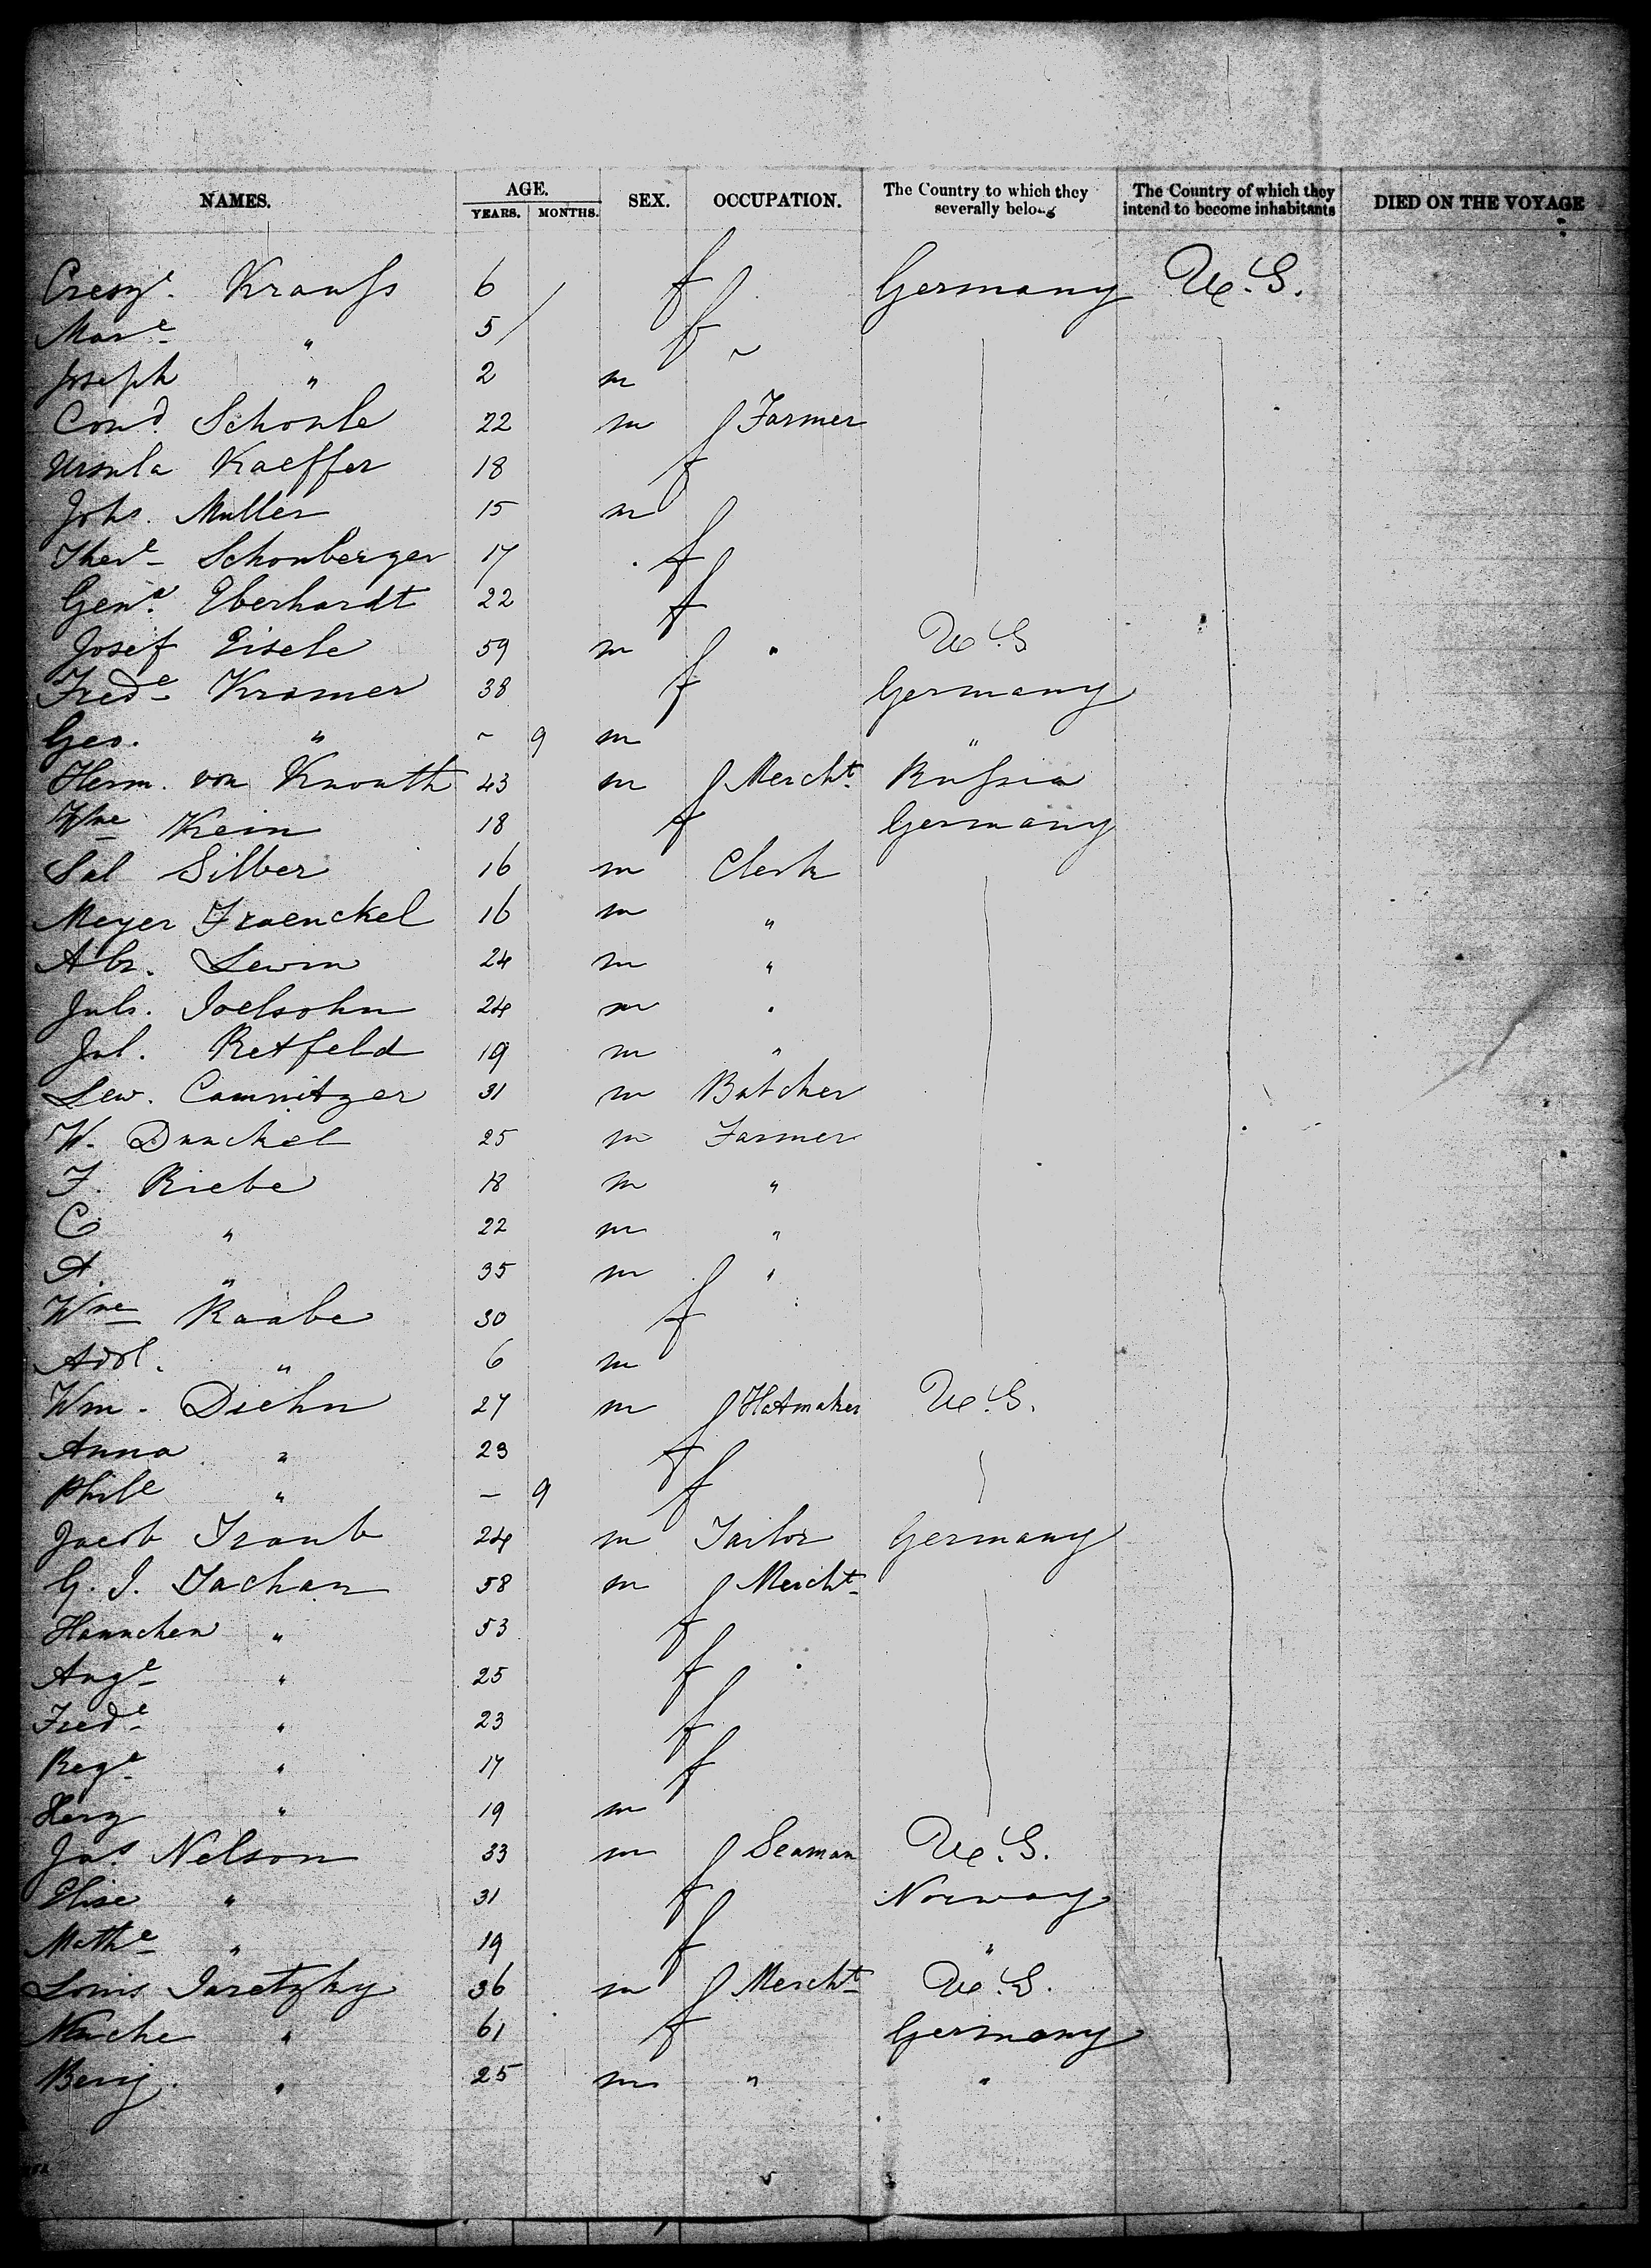 NAMES. AGE. YEARS. MONTHS. SEX. OCCUPATION. The Country to which they severally belong The Country of which they intend to become inhabitants DIED ON THE VOYAGE
Cresz.e Krauss 6 f Germany U.S.
Mar.e " 5 f
Joseph " 2 m ~
Cond. Schonle 22 m Farmer
Ursula Kaeffer 18 f
Johs. Muller 15 m
Ther.e Schonberger 17 f
Gen.e Eberhardt 22 f
Josef Eisele 59 m " U.S
Fred.e Kramer 38 f Germany
Geo. " ~ 9 m "
Herm. von Knouth 43 m Mercht. Russia
Wne Kein 18 f Germany
Sal Silber 16 m Clerk
Meyer Fraenckel 16 m "
Abr. Lewin 24 m "
Juls. Joelsohn 24 m "
Jul. Retfeld 19 m "
Lew. Camnitzer 31 m Butcher
W. Dunckel 25 m Farmer
F. Riebe 18 m "
C " 22 m "
A. " 35 m "
Wne Raabe 30 f
Adol. " 6 m
Wm. Diehn 27 m Hatmaker U.S.
Anna " 23 f
Phile " – 9 f
Jacob Traub 24 m Tailor Germany
G. J. Tachan 58 m Mercht.
Hannchen " 53 f
Aug.e " 25 f
Fred.e " 23 f
Reg.e " 17 f
Herz " 19 m
Jas. Nelson 33 m Seaman U.S.
Elise " 31 f Norway
Math.e " 19 f "
Louis Jaretzky 36 m Mercht. U.S.
" 61 f Germany
Benj. " 25 m " "